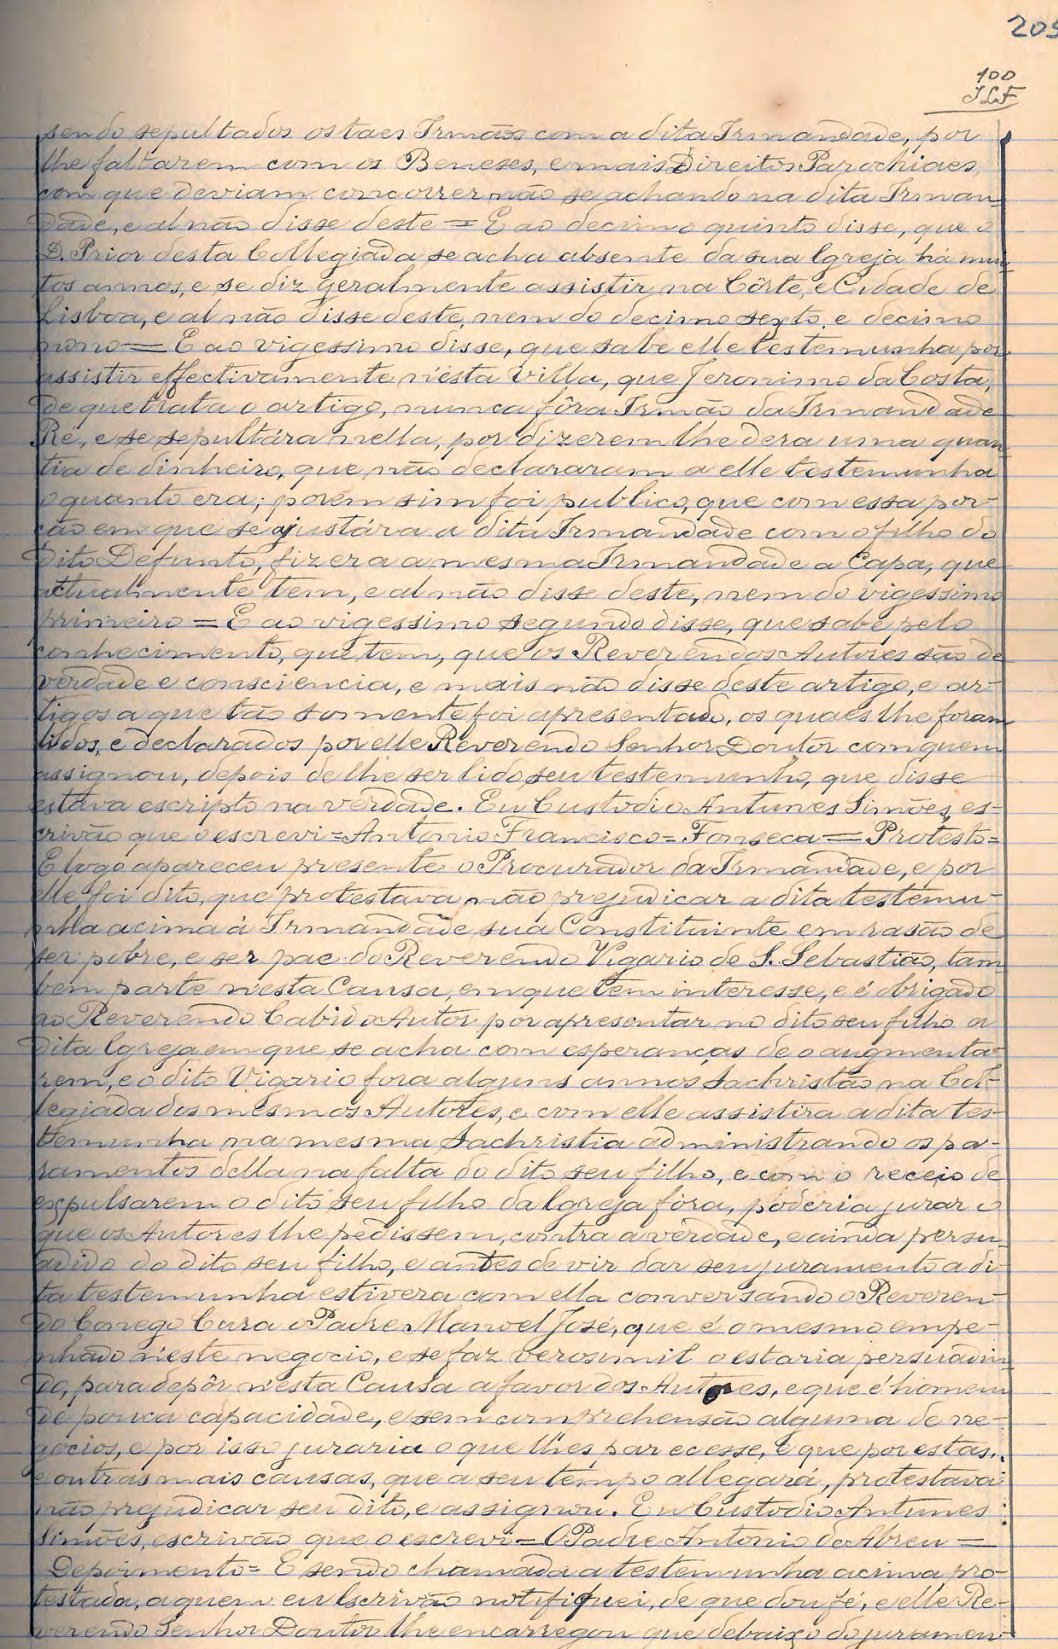 205
100
sendo sepultados os taes Irmãos com a dita Irmandade, por
lhe faltarem com os Beneses, e mais Direitos Parochiaes,
com que deviam concorrer não se achando na dita Irman
dade, e al não disse deste = E ao decimo quinto disse, que o
D. Prior desta Collegiada se acha absente da sua Igreja há mui
tos annos, e se diz geralmente assistir na Côrte, e Cidade de
Lisboa, e al não disse deste, nem do decimo sexto, e decimo
nono = E ao vigessimo disse, que sabe elle testemunha por
assistir effectivamente n'esta Villa, que Jeronimo da Costa,
de que trata o artigo, nunca fôra Irmão da Irmandade
Ré, e se sepultára nella, por dizerem lhe dera uma quan
tia de dinheiro, que não declararam a elle testemunha
o quanto era; porém sim foi publico, que com essa por-
ção em que se ajustára a dita Irmandade com o filho do
dito Defunto, fizera a mesma Irmandade a Capa, que
actualmente tem, e al não disse deste, nem do vigessimo
primeiro = E ao vigessimo segundo disse, que sabe pelo
conhecimento, que tem, que os Reverendos Autores são de
verdade e consciencia, e mais não disse deste artigo, e ar-
tigos a que tão somente foi apresentado, os quaes lhe foram
lidos, e declarados por elle Reverendo Senhor Doutor com quem
assignou, depois de lhe ser lido seu testemunho, que disse
estava escripto na verdade. Eu Custodio Antunes Simões, es-
crivão que o escrevi = Antonio Francisco = Fonseca = Protesto =
E logo apareceu presente o Procurador da Irmandade, e por
elle foi dito, que protestava não prejudicar a dita testemu-
nha acima á Irmandade sua Constituinte em rasão de
ser pobre, e ser pae do Reverendo Vigario de S. Sebastião, tam
bem parte n'esta Causa, em que tem interesse, e é obrigado
ao Reverendo Cabido Autor por apresentar no dito seu filho a
dita Igreja em que se acha com esperanças de o augmenta-
rem, e o dito Vigario fora alguns annos Sachristão na Col-
legiada dos mesmos Autores, e com elle assistira a dita tes-
temunha na mesma Sachristia administrando os pa-
ramentos della na falta do dito seu filho, e com o receio de
expulsarem o dito seu filho da Igreja fóra, poderia jurar o
que os Autores lhe pedissem, contra a verdade, e ainda persu-
adido do dito seu filho, e antes de vir dar seu juramento a di
ta testemunha estivera com ella conversando o Reveren-
do Conego Cura o Padre Manoel José, que é o mesmo empe-
nhado n'este negocio, e se faz verosimil o estaria persuadin
do, para depôr n'esta Causa a favor dos Autores, e que é homem
de pouca capacidade, e sem comprehensão alguma de ne-
gocios, e por isso juraria o que lhes parecesse, e que por estas,
e outras mais causas, que a seu tempo allegará, protestava
não prejudicar seu dito, e assignou. Eu Custodio Antunes
Simões, escrivão que o escrevi = O Padre Antonio de Abreu =
Depoimento = E sendo chamada a testemunha acima pro-
testada, a quem eu Escrivão notifiquei, de que dou fé, e elle Re-
verendo Senhor Doutor lhe encarregou que debaixo do juramen